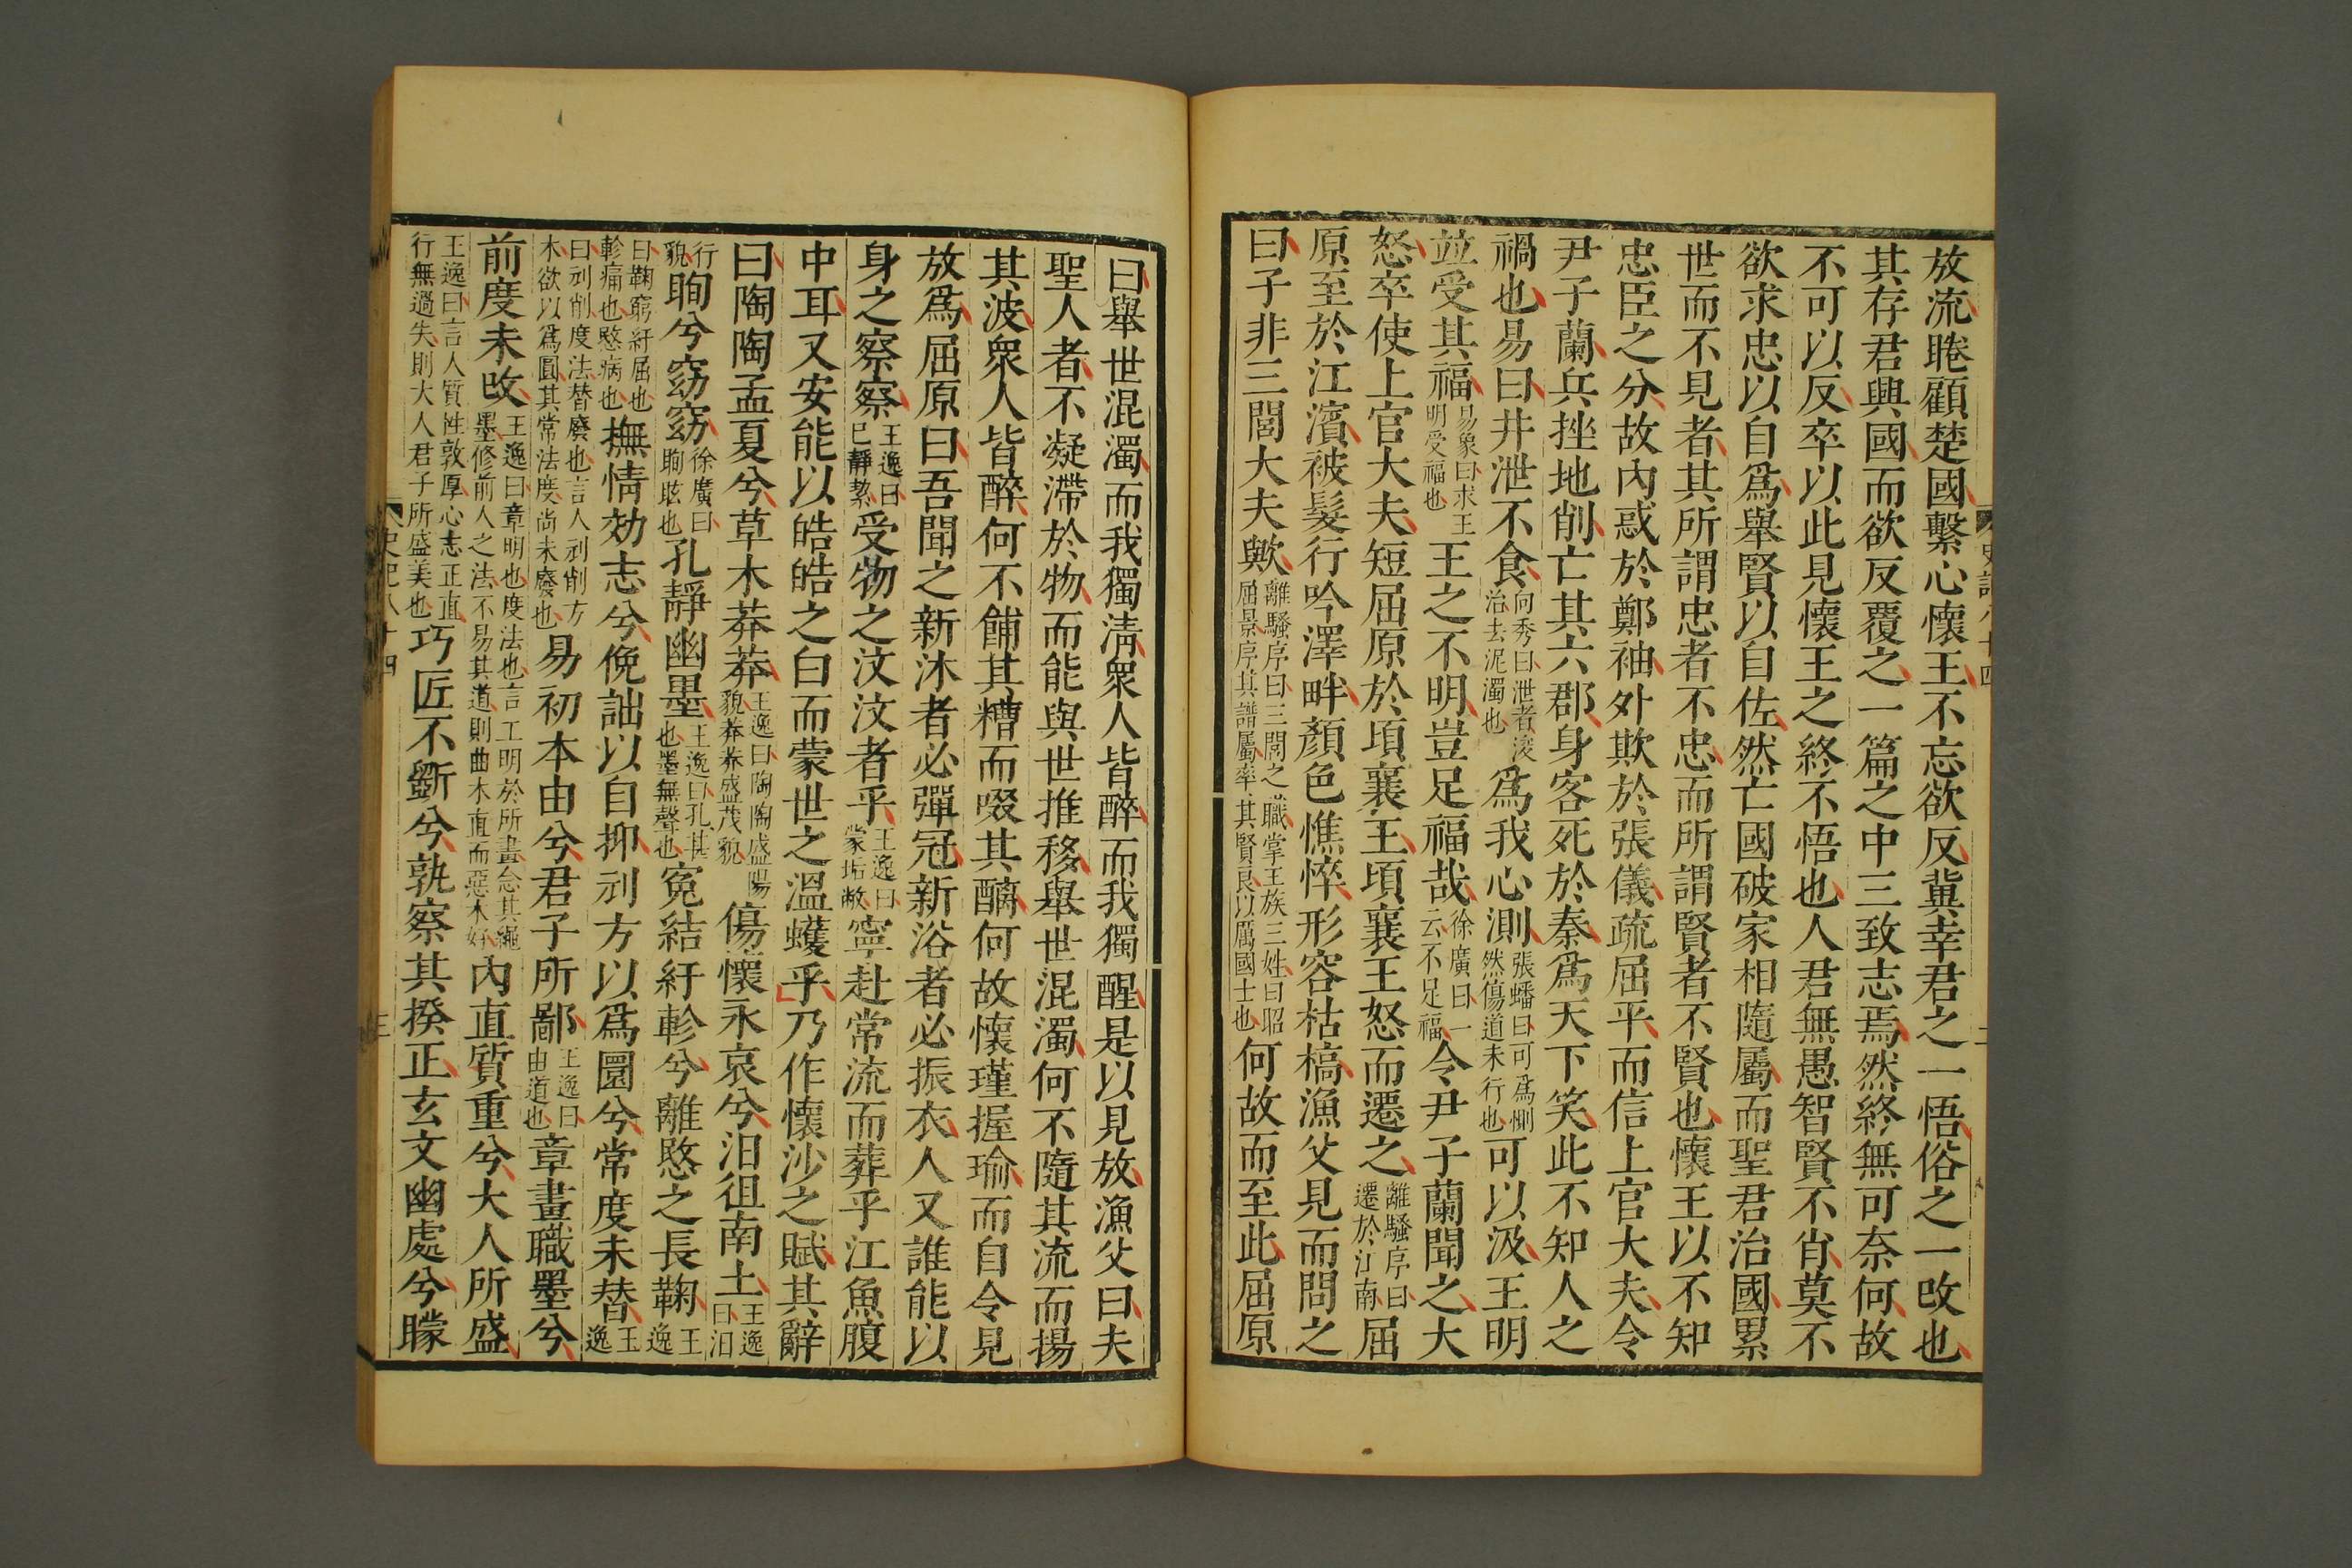 放流睠顧楚國繫心懷王不忘欲反冀幸君之一悟俗之一改也
其存君興國而欲反覆之一篇之中三致志焉然終無可奈何故
不可以反卒以此見懷王之終不悟也人君無愚智賢不肖莫不
欲求忠以自爲舉賢以自佐然亡國破家相隨屬而聖君治國累
世而不見者其所謂忠者不忠而所謂賢者不賢也懷王以不知
忠臣之分故內惑於鄭袖外欺於張儀疏屈平而信上官大夫令
尹子蘭兵挫地削亡其六郡身客死於秦爲天下笑此不知人之
禍也易曰井泄不食向秀曰泄者浚治去泥濁也爲我心測張璠曰可爲惻然傷道未行也可以汲王明
並受其福易象曰求王明受福也王之不明豈足福哉徐廣曰一云不足福令尹子蘭聞之大
怒卒使上官大夫短屈原於頃襄王頃襄王怒而遷之離騷序曰遷於江南屈
原至於江濱被髮行吟澤畔顏色憔悴形容枯槁漁父見而問之
曰子非三閭大夫歟離騷序曰三閭之職掌王族三姓曰昭屈景序其譜屬率其賢良以厲國士也何故而至此屈原
史記八十四
二
曰舉世混濁而我獨清衆人皆醉而我獨醒是以見放漁父曰夫
聖人者不凝滯於物而能與世推移舉世混濁何不隨其流而揚
其波衆人皆醉何不餔其糟而啜其醨何故懷瑾握瑜而自令見
放爲屈原曰吾聞之新沐者必彈冠新浴者必振衣人又誰能以
身之察察王逸曰已靜絜受物之汶汶者乎王逸曰蒙垢敝寧赴常流而葬乎江魚腹
中耳又安能以皓皓之白而蒙世之溫蠖乎乃作懷沙之賦其辭
曰陶陶孟夏兮草木莽莽王逸曰陶陶盛陽貌莽莽盛茂貌傷懷永哀兮汨徂南土王逸曰汨
行貌眴兮窈窈徐廣曰眴眩也孔靜幽墨王逸曰孔甚也墨無聲也寃結紆軫兮離愍之長鞠王逸
曰鞠窮紆屈也軫痛也愍病也撫情効志兮俛詘以自抑刓方以爲圜兮常度未替王逸
曰刓削度法替廢也言人刓削方木欲以爲圓其常法度尚未廢也易初本由兮君子所鄙王逸曰由道也章畫職墨兮
前度未改王逸曰章明也度法也言工明於所畫念其繩墨修前人之法不易其道則曲木直而惡木好內直質重兮大人所盛
王逸曰言人質性敦厚心志正直行無過失則大人君子所盛美也巧匠不斵兮孰察其揆正玄文幽處兮矇
史記八十四
三